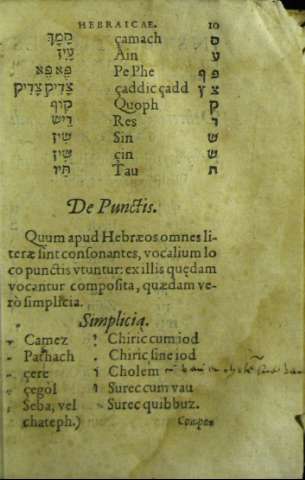 HEBRAICAE. 10
סָמֶךְ çamach ס
עַיִן Ain ע
פֵּא פֵא Pe Phe פ ף
צָדִיק צָדִיק çaddic çadd צ ץ
קוֹף Quoph ק
רֵישׁ Res ר
שִׁין Sin ש
שִׂין çin ש
תָּיו Tau ת
De Punctis.
Quum apud Hebræos omnes li-
teræ sint consonantes, vocalium lo
co punctis vtuntur: ex illis quędam
vocantur composita, quædam ve-
rò simplicia.
Simplicią.
Camez Chiric cum iod
Pathach Chiric sine iod
çere Cholem
çegol Surec cum vau
Seba, vel Surec quibbuz.
chateph.) Compos